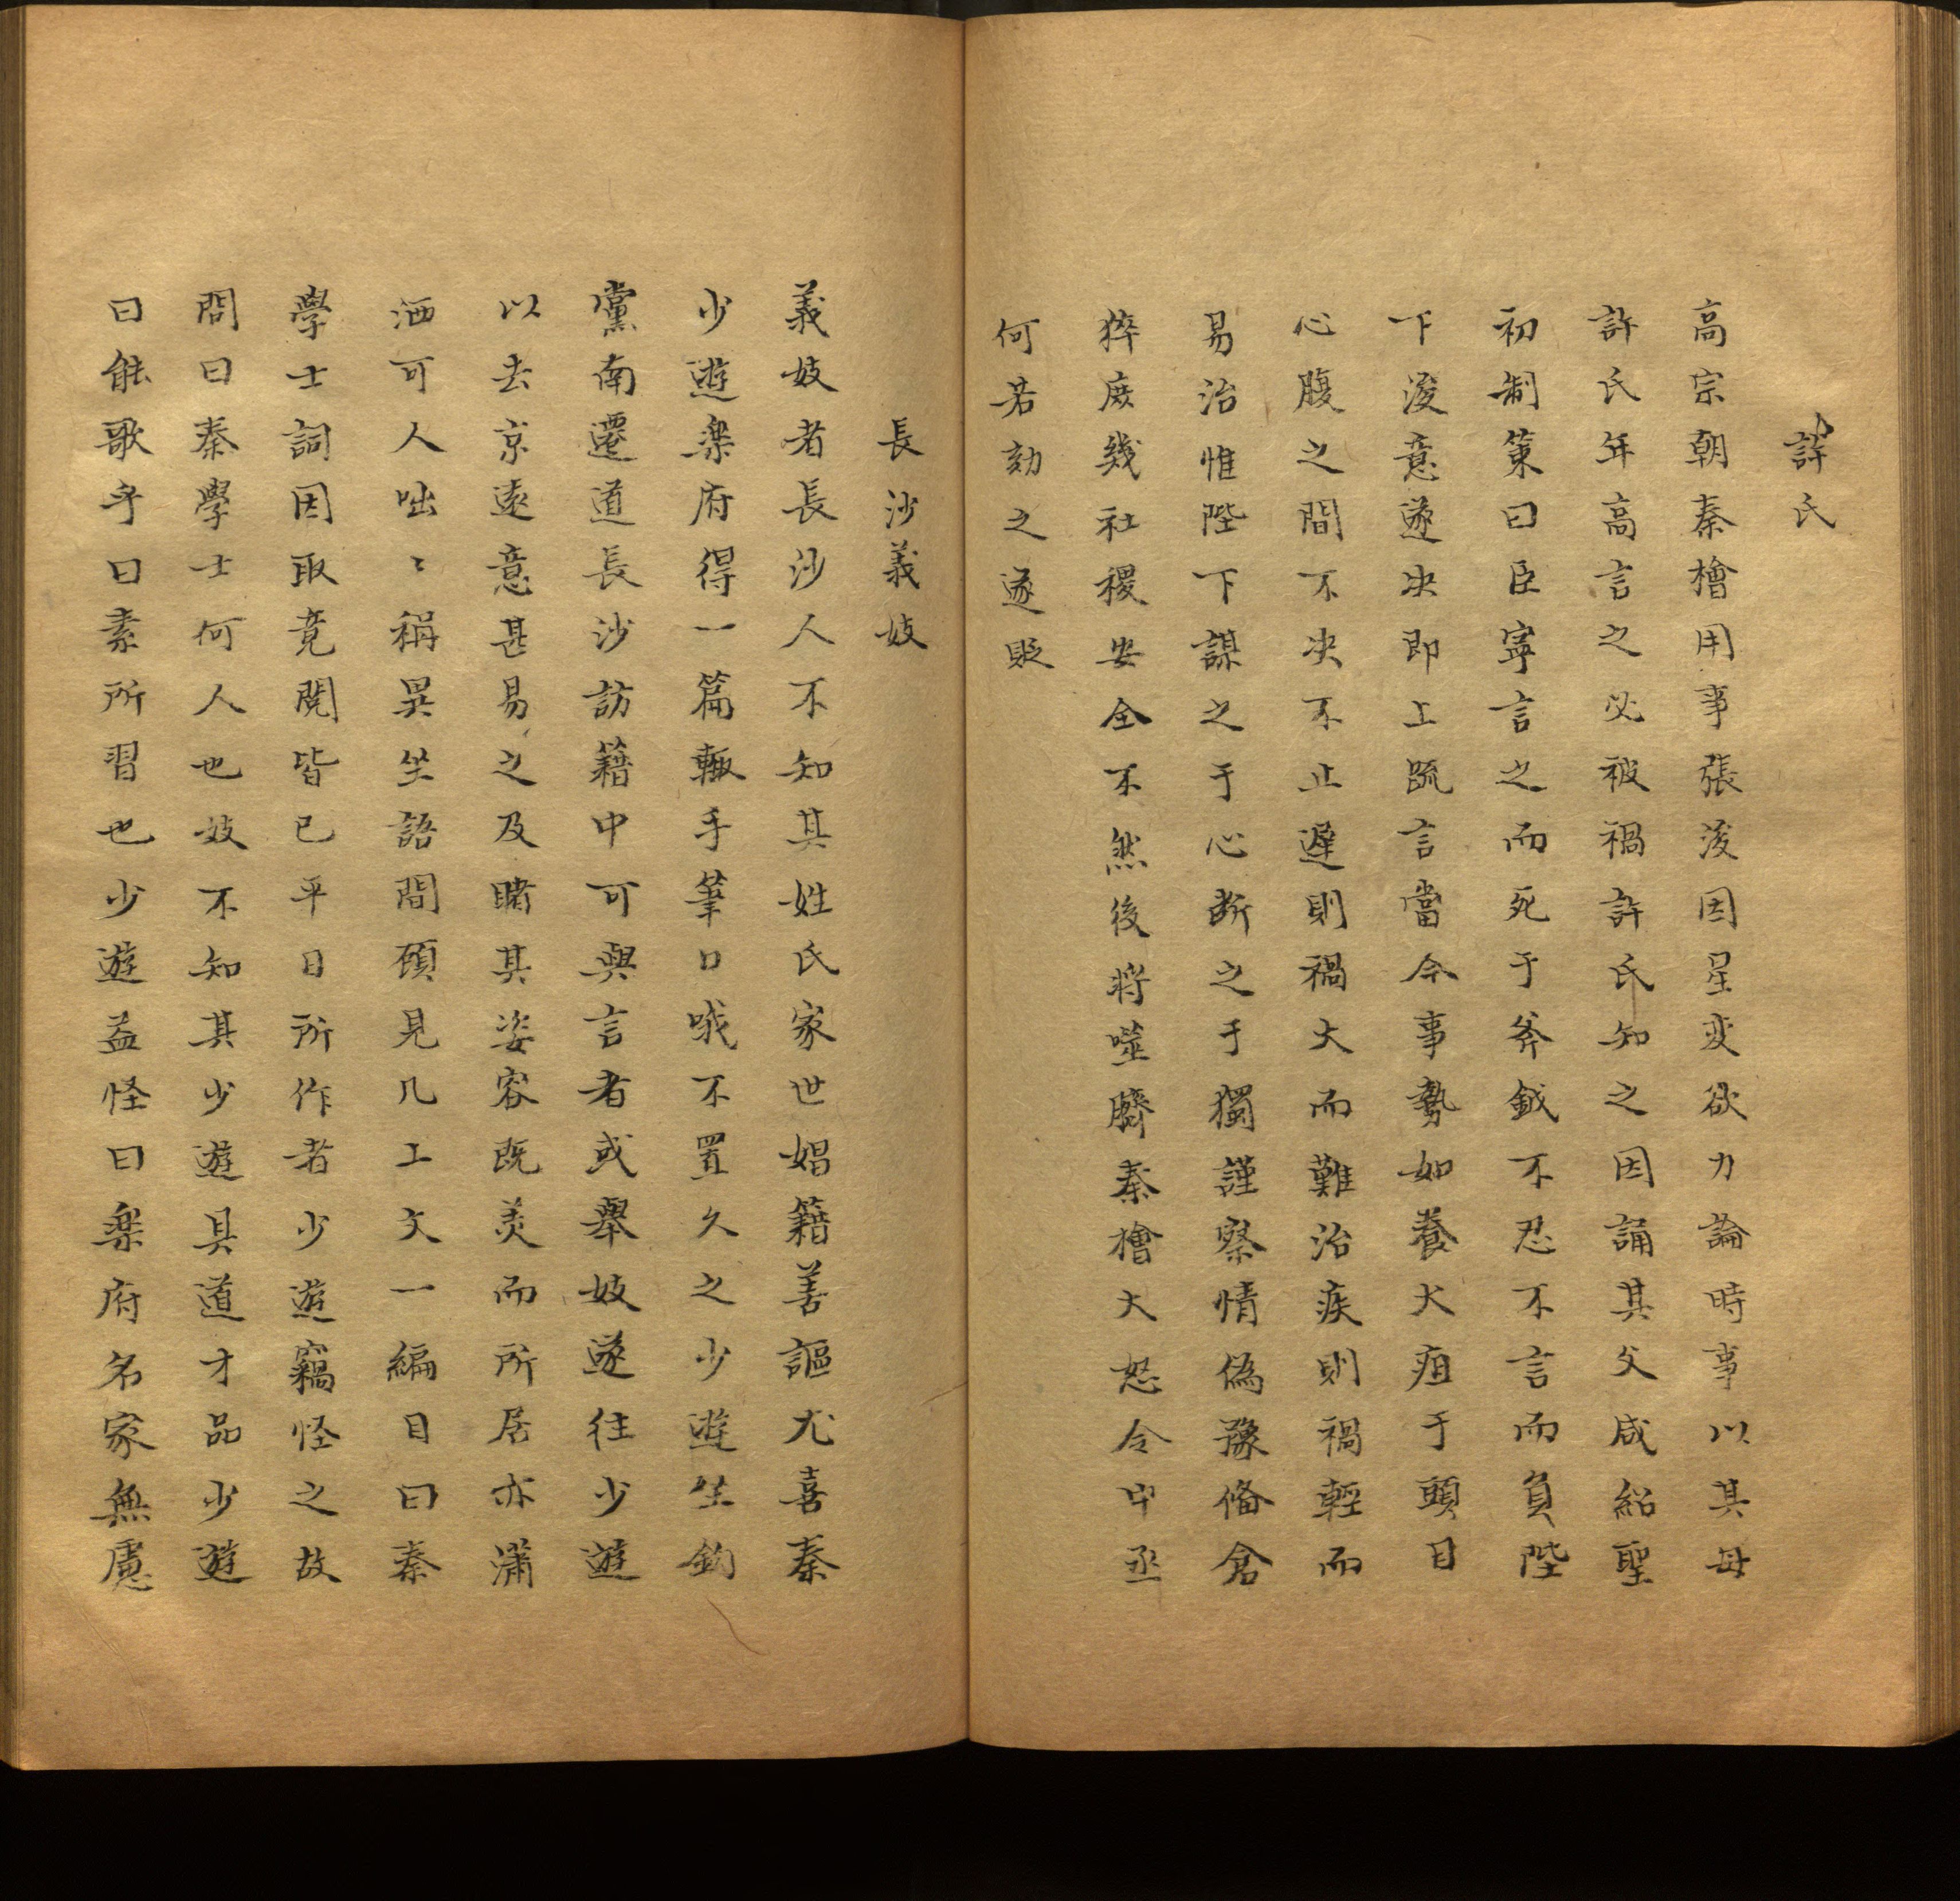 許氏
高宗朝秦檜用事張浚因星变欲力論時事以其母
許氏年高言之必被禍許氏知之因誦其父咸紹聖
初制策曰臣寧言之而死于斧鉞不忍不言而負陛
下浚意遂决即上疏言當今事勢如養大疽于頭目
心腹之間不决不止遲則禍大而難治疾則禍輕而
易治惟陛下謀之于心断之于獨謹察情偽豫俻倉
猝庶幾社稷安全不然後將噬臍秦檜大怒令中丞
何若劾之遂貶
長沙義妓
義妓者長沙人不知其姓氏家世娼籍善謳尤喜秦
少遊樂府得一篇輙手筆口哦不置久之少遊坐鈎
黨南遷道長沙訪籍中可與言者或舉妓遂往少遊
以去京遠意甚易之及睹其姿容既美而所居亦瀟
洒可人咄〻稱異坐語間顧見几上文一編目曰秦
學士詞因取竟閱皆已平日所作者少遊竊怪之故
問曰秦學士何人也妓不知其少遊具道才品少遊
曰能歌乎曰素所習也少遊益怪曰樂府名家無慮